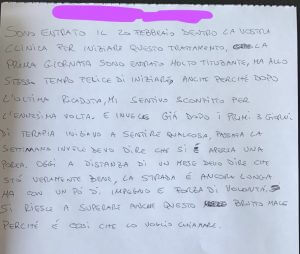 SONO ENTRATO IL 20 FEBBRAIO DENTRO LA VOSTRA
CLINICA PER INIZIARE QUESTO TRATTAMENTO, LA
PRIMA GIORNATA SONO ENTRATO MOLTO TITUBANTE, MA ALLO
STESSO TEMPO FELICE DI INIZIARE, ANCHE PERCHÉ DOPO
L'ULTIMA RICADUTA, MI SENTIVO SCONFITTO PER
L'ENNESIMA VOLTA. E INVECE GIÀ DOPO I PRIMI 3 GIORNI
DI TERAPIA INIZIAVO A SENTIRE QUALCOSA, PASSATA LA
SETTIMANA INVECE DEVO DIRE CHE SI È APERTA UNA
PORTA. OGGI A DISTANZA DI UN MESE DEVO DIRE CHE
STÓ VERAMENTE BENE, LA STRADA È ANCORA LUNGA
MA CON UN PO' DI IMPEGNO E FORZA DI VOLONTÀ.
SI RIESCE A SUPERARE ANCHE QUESTO BRUTTO MALE
PERCHÉ È COSÌ CHE LO VOGLIO CHIAMARE.